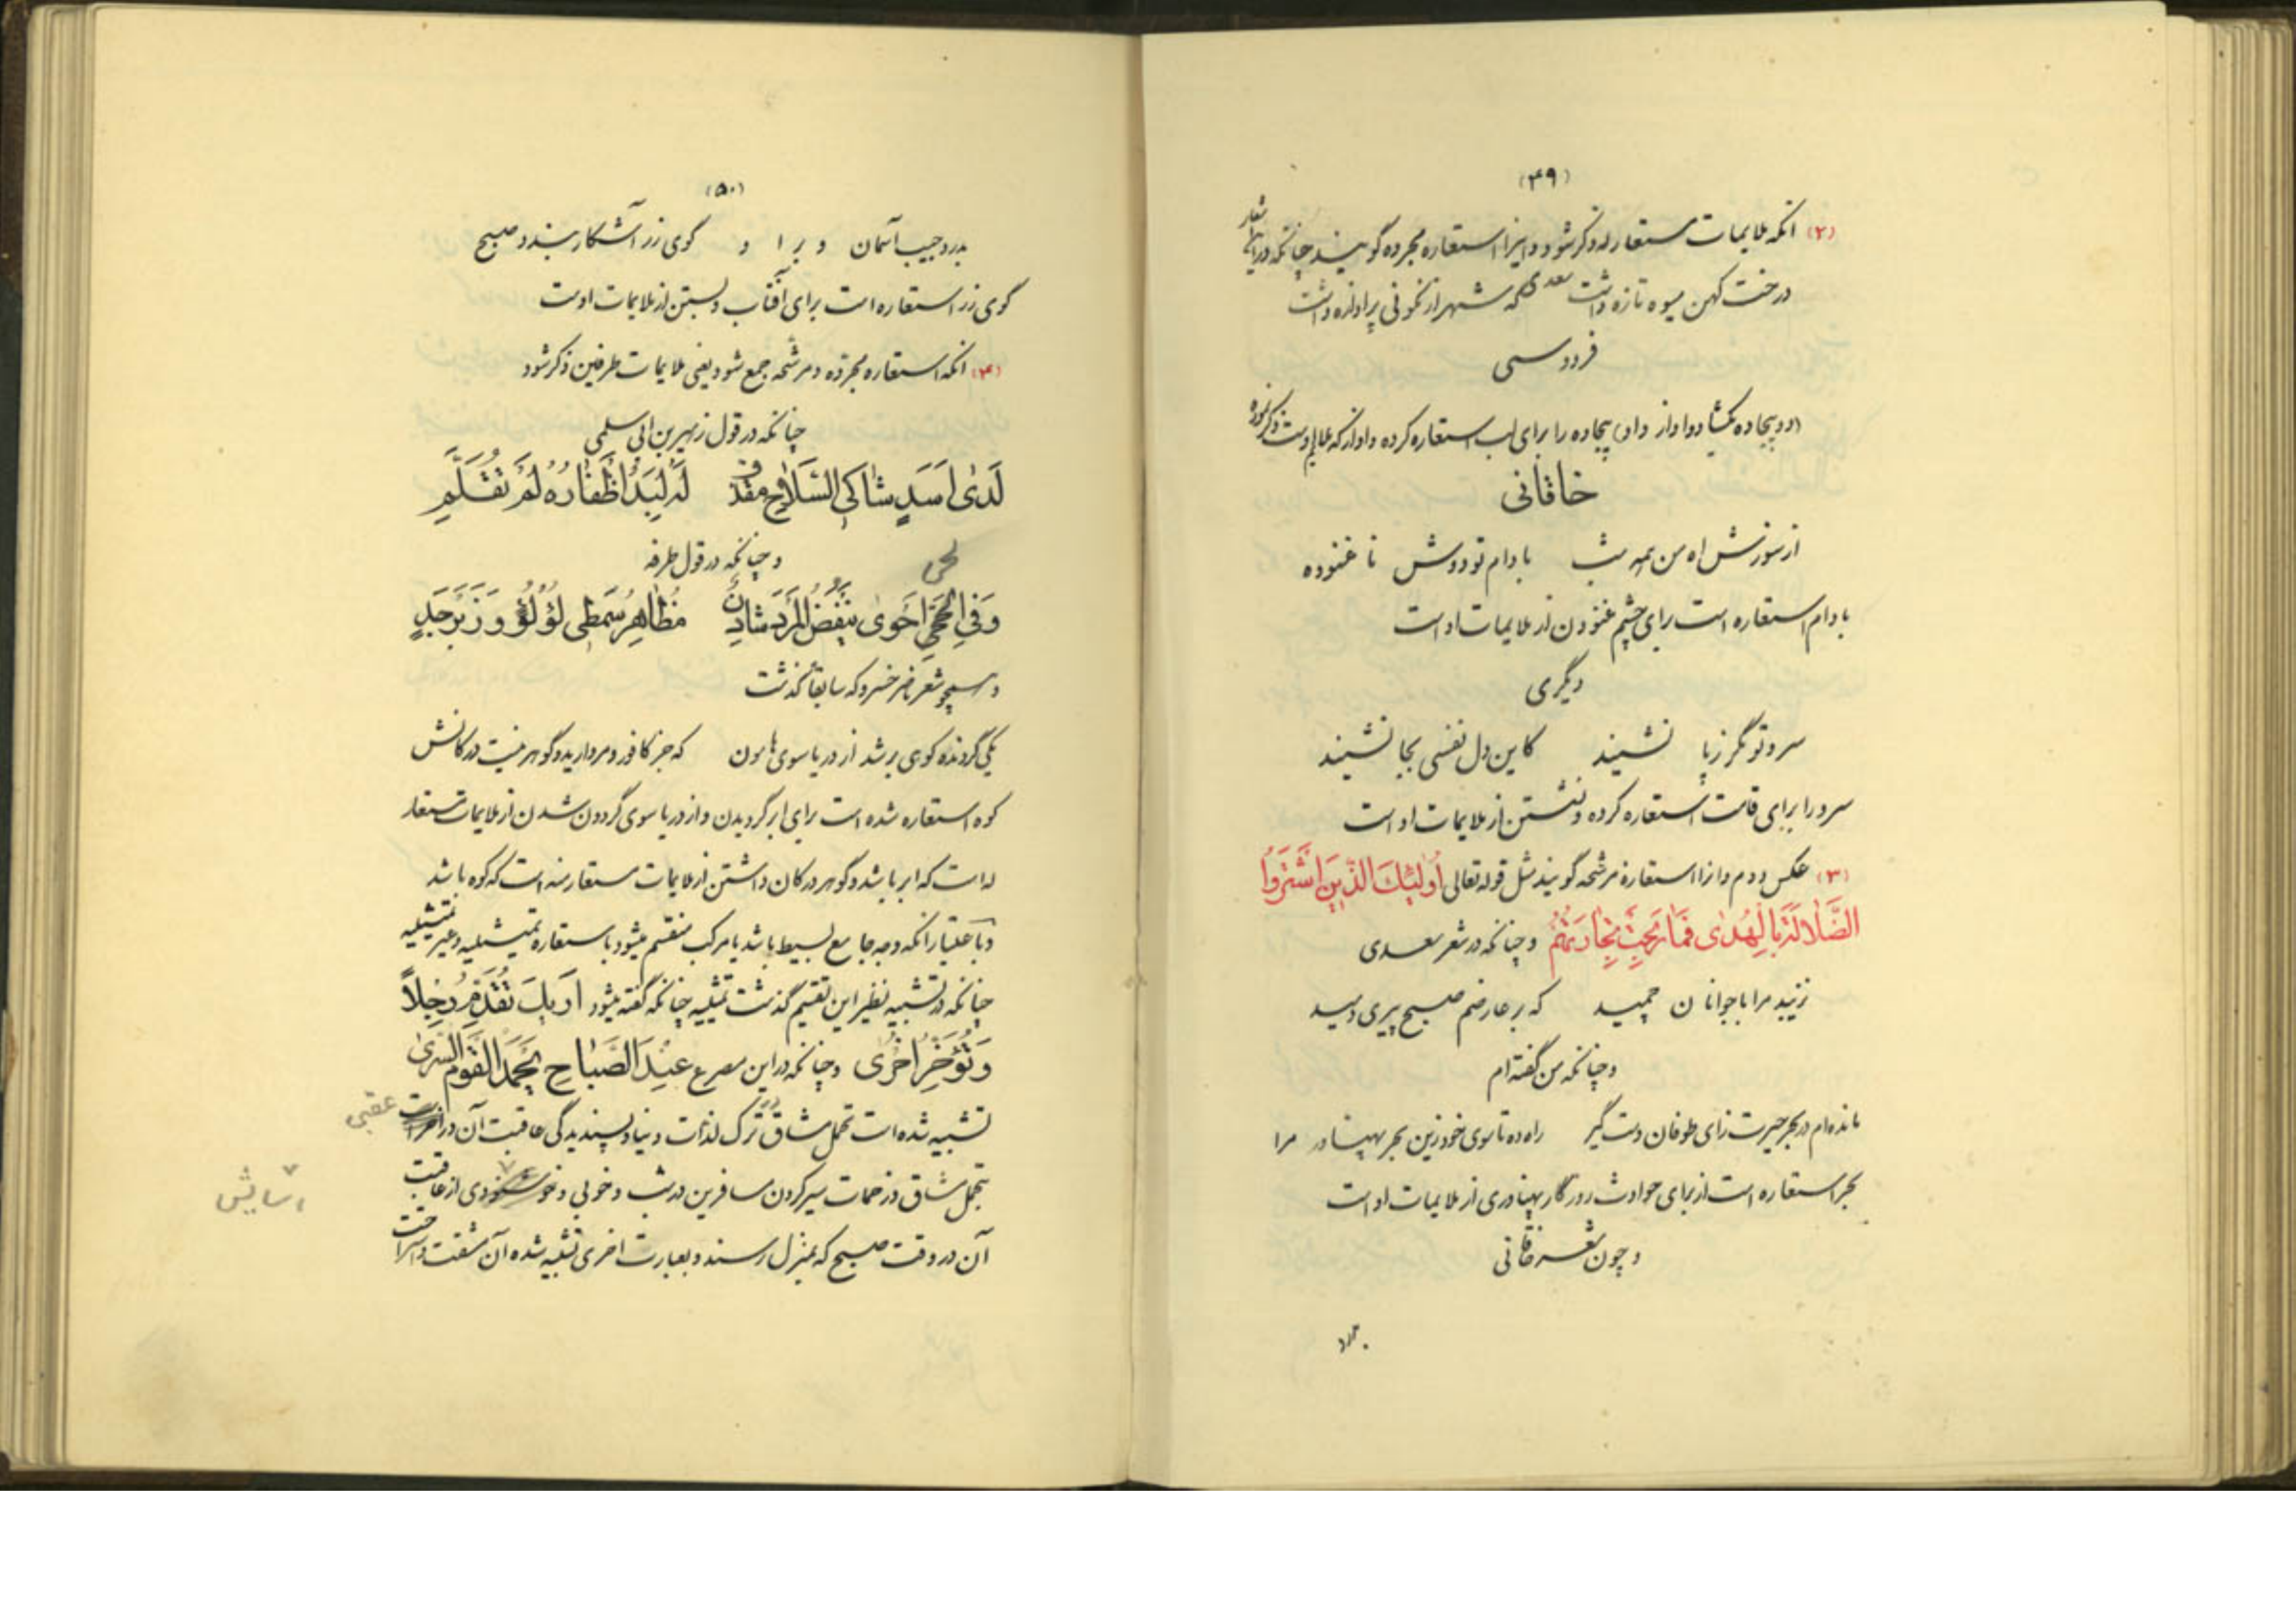 (۴۹)
(۲) انکه ملایمات مستعار له ذکر شود و اینرا استعاره مجرده گویند چنانکه در این شعار
درخت کهن میوه تازه داشت سعدی که شهر از نکوئی پر اوازه داشت
فردوسی
(دو بیجاده بگشاد و اواز داد) بیجاده را برای لب استعاره کرده و اواز که ملایم اوست ذکر نموده
خاقانی
از سوزش اه من همه شب بادام تو دوش نا غنوده
بادام استعاره است برای چشم غنودن از ملایمات اواست
دیگری
سرو تو مگر ز پا نشیند کاین دل نفسی بجا نشیند
سرو را برای قامت استعاره کرده و نشستن از ملایمات او است
(۳) عکس دوم و انرا استعاره مرشحه گویند مثل قوله تعالی اُولٰئِكَ الَّذینَ اشْتَرَوُا
الضَّلالَةَ بِالْهُدٰى فَمٰا رَبِحَتْ تِجٰارَتُهُمْ و چنانکه در شعر سعدی
نزیبد مرا با جوانان چمید که بر عارضم صبح پیری دمید
و چنانکه من گفته ام
مانده ام در بحر حیرت زای طوفان دست گیر راه ده تا سوی خود زین بحر پهناور مرا
بحر استعاره است از برای حوادث روزگار پهناوری از ملایمات او است
و چون شعر خاقانی
بدرد
(۵۰)
بدرد جیب آسمان و بر او گوی زر آشکار بندد صبح
گوی زر استعاره است برای آفتاب و بستن از ملایمات اوست
(۴) انکه استعاره مجرده و مرشحه جمع شود یعنی ملایمات طرفین ذکر شود
چنانکه در قول زهیر بن ابی سلمی
لَدٰى اَسَدٍ شٰاكِی السِّلٰاحِ مقذف لَهُ لِبَدٌ اَظْفٰارُهُ لَمْ تُقَلَّمِ
و چنانکه در قول طرفه
وَفِی الْحَیِّ اَحْوٰى یَنْفُضُ الْمَرْدَ شٰادِنٌ مُظٰاهِرُ سِمْطَی لُؤْلُؤٍ وَ زَبَرْجَدٍ
و همچو شعر ناصر خسرو که سابقاً گذشت
یکی گردنده کوهی بر شد از دریا سوی هامون که جز کافور و مروارید و گوهر نیست در کانش
کوه استعاره شده است برای ابر گردیدن و از دریا سوی گردون شدن از ملایمات مستعار
له است که ابر باشد و گوهر در کان داشتن از ملایمات مستعار منه است که کوه باشد
و باعتبار انکه وجه جامع بسیط باشد یا مرکب منقسم میشود باستعاره تمثیلیه و غیر تمثیلیه
چنانکه در تشبیه نظیر این تقسیم گذشت تمثلیه چنانکه گفته میشود اَرٰیكَ تُقَدِّمُ رِجْلاً
وَ تُؤَخِّرُ اُخْرٰى و چنانکه در این مصرع عِنْدَ الصَّبٰاحِ یَحْمَدُ الْقَوْمُ السُّرىٰ
تشبیه شده است تحمل مشاق در ترک لذات دنیا و پسندیدگی عاقبت آن در اخرت عقبی
بتحمل مشاق و زحمات سیر کردن مسافرین در شب و خوبی و خوشنودی از عاقبت
آسایش
آن در وقت صبح که بمنزل رسند و بعبارت اخری تشبیه شده آن مشقت و استراحت